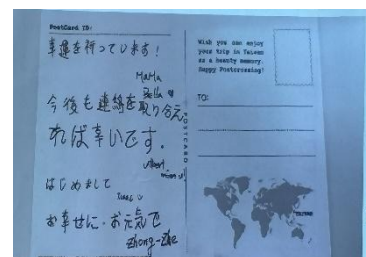 PostCard ID:
幸運を祈っています!
MaMa
Bella
今後も連絡を取り合え
れば幸いです。
Albert
はじめまして
お幸せに・お元気で
Zhong-Zhe
POSTCARD
Wish you can enjoy
your trip in Taiwan
as a beauty memory.
Happy Postcrossing!
TO:
TAIWAN